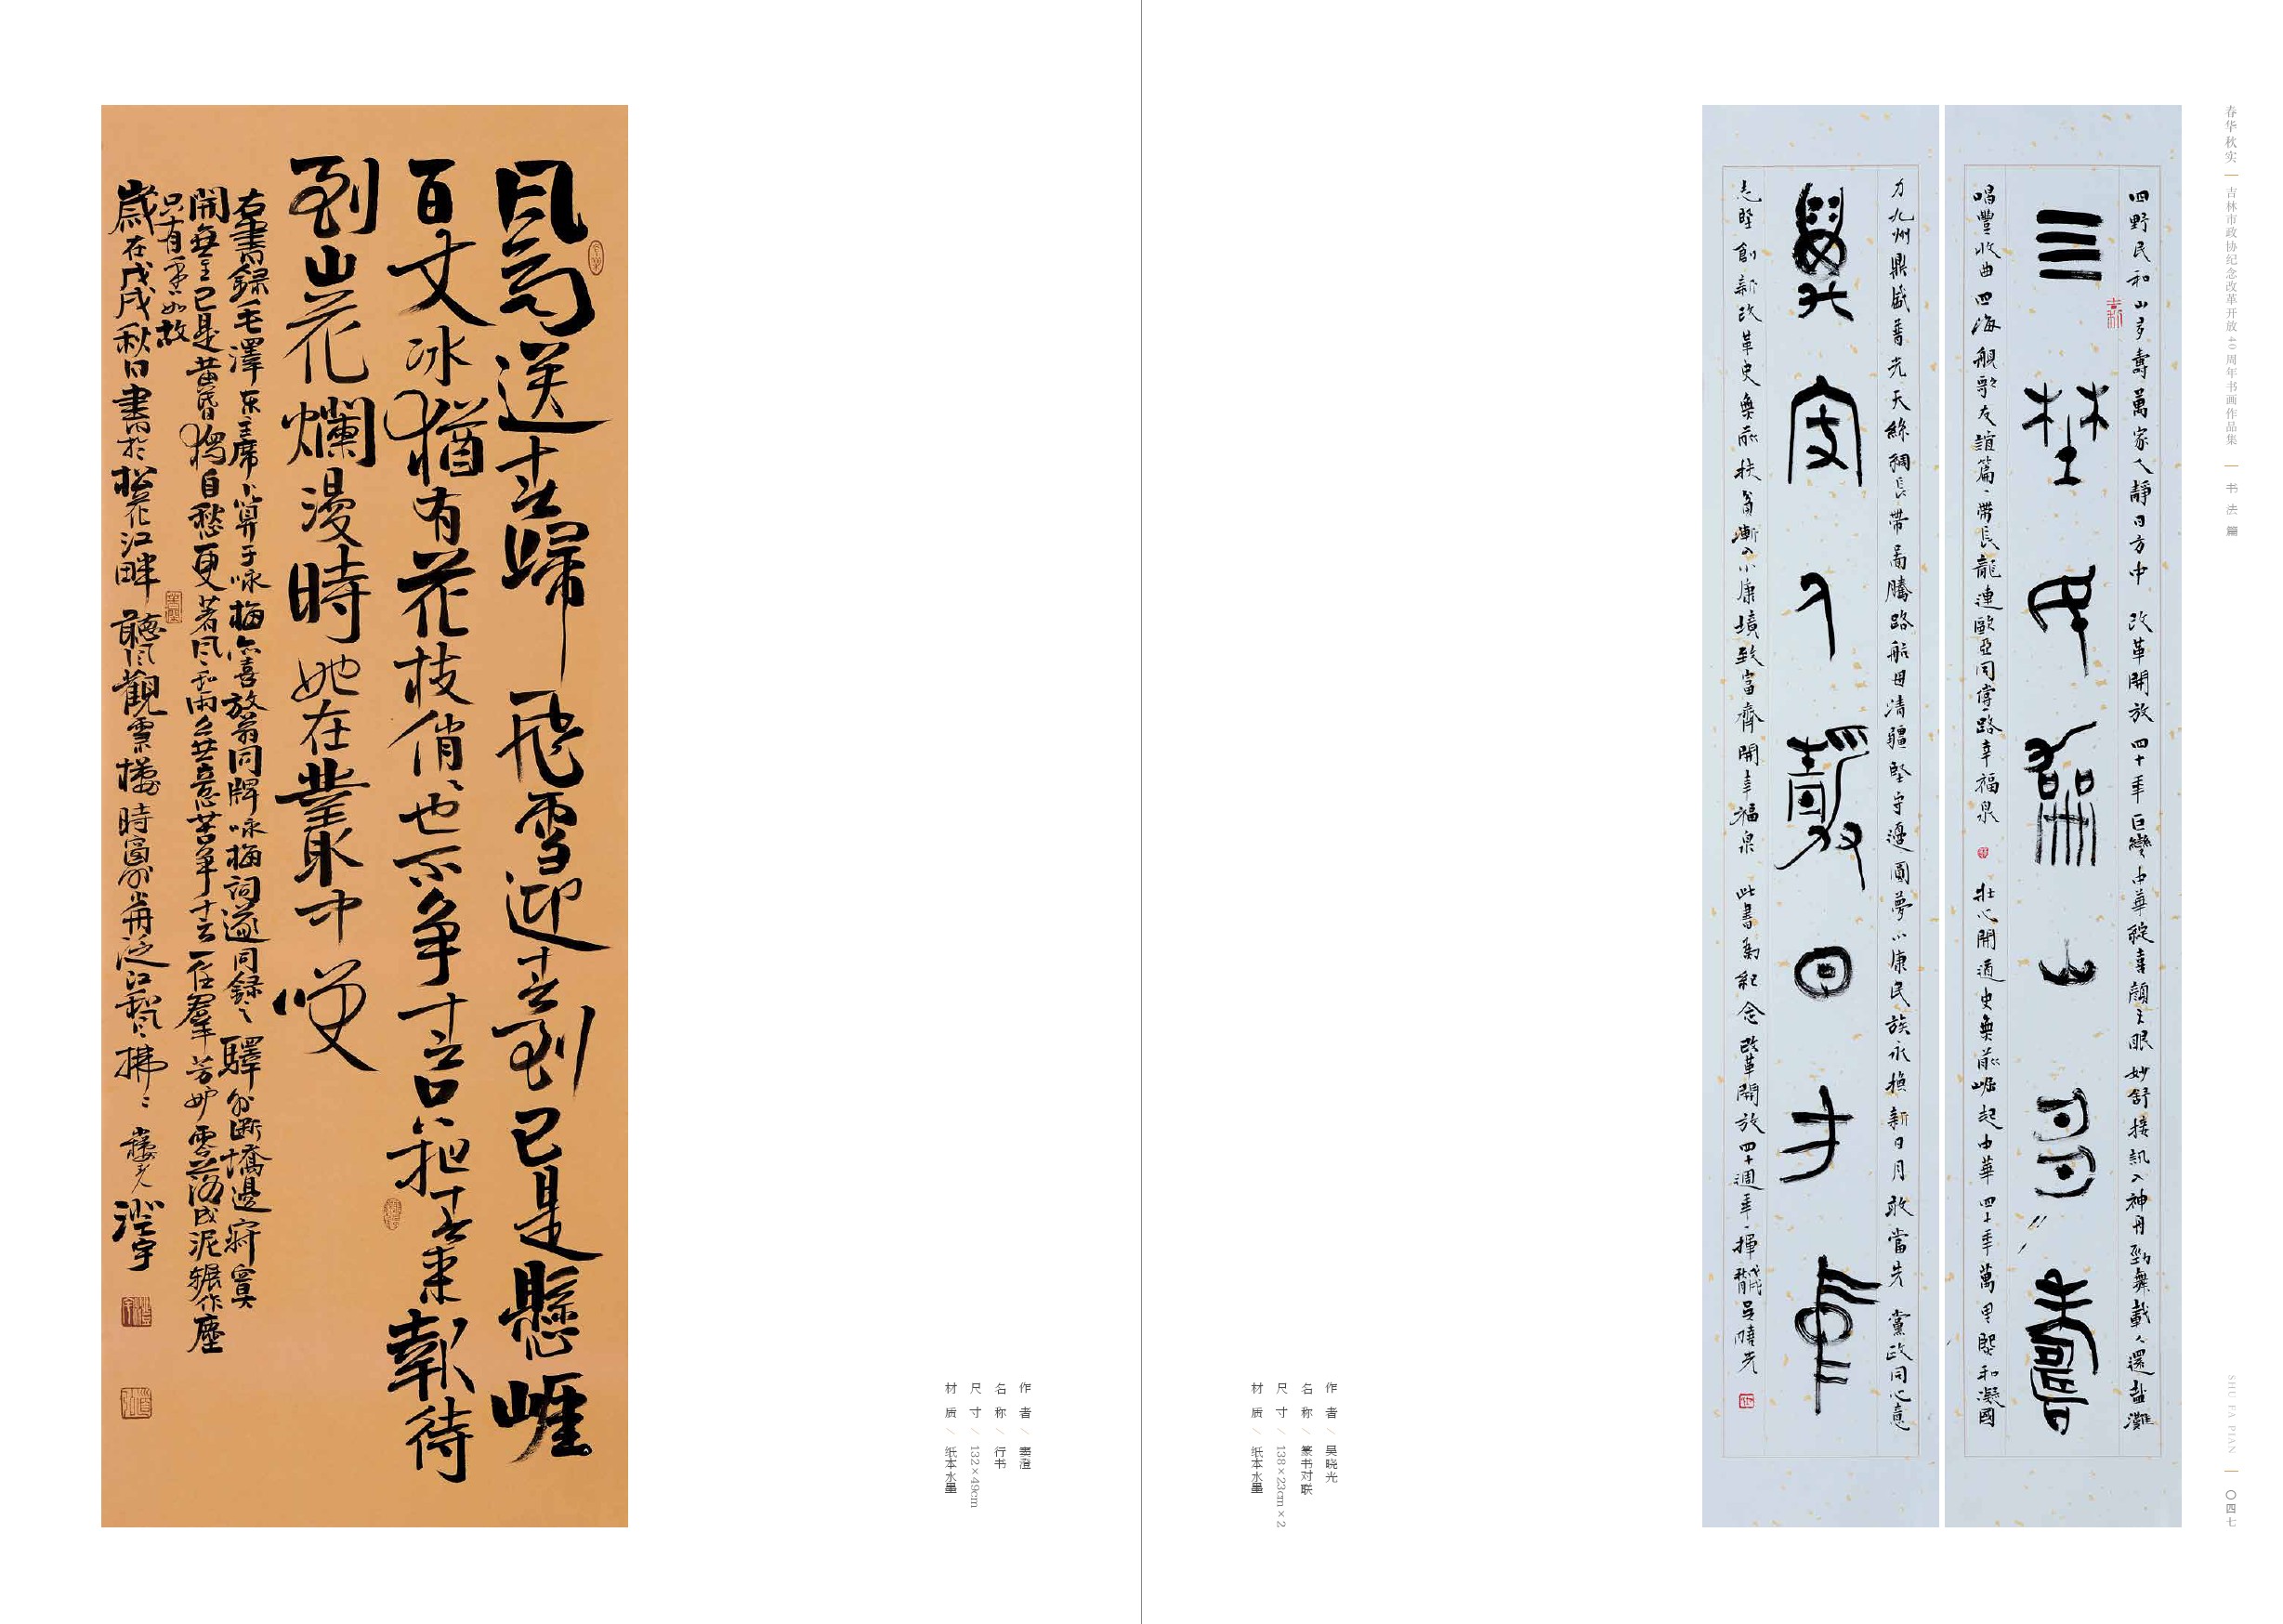 風雨送春歸飛雪迎春到已是懸崖
百丈冰猶有花枝俏〻也不争春只把春來報待
到山花爛漫時她在叢中笑
右書録毛澤東主席卜算子咏梅亦喜放翁同牌咏梅詞遂同録之驛外断橋邊寂寞
開無主已是黄昏獨自愁更著風和雨無意苦争春一任羣芳妒零落成泥辗作塵
只有香如故
歲在戊戌秋日書於松花江畔聽風觀雪樓時窗外泛江風拂〻澄宇
作者/窦澄
名称/行书
尺寸/132×49cm
材质/纸本水墨
四野民和山多壽萬家人靜日方中 改革開放四十年巨變中華綻喜顏天眼妙舒接訊入神舟勁舞載人還鹽灘
四野民和山多壽
唱豐收曲四海艦歌友誼篇一帶長龍連歐亞同傳一路幸福泉 壯心開通史無前崛起中華四十年萬里熙和凝國
力九州鼎盛著先天絲綢長帶啚騰路船母清疆堅守邊圓夢小康民族永換新日月敢當先 黨政同心意
萬家人靜日方中
志堅創新改革史無前扶貧漸入小康境致富齊開幸福泉 此書為紀念改革開放四十週年一揮戊戌秋月吴曉光
作者/吴晓光
名称/篆书对联
尺寸/138×23cm×2
材质/纸本水墨
春华秋实 吉林市政协纪念改革开放40周年书画作品集 书法篇
SHU FA PIAN 〇四七